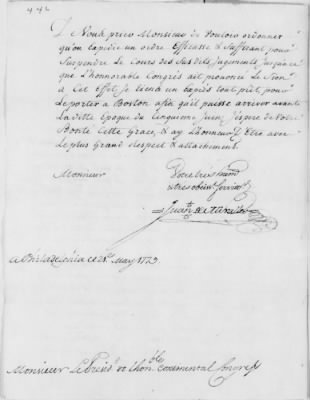 Je Vous prier Monsieur de Vouloir ordonner
qu'on Expedie un ordre Efficasse & Suffisant pour
Suspendre Le Cours des Susdits Jugements Jusqu'a ce
que L'honorable Congrés ait prononcé Le Sien
a Cet Effet, Je tiens un Exprés tout prêt, pour
Le porter a Boston afin qu'il puisse arriver avant
La ditte Epoque du Cinquieme Juin, J'espere de Votre
Bonté Cette Grace, & ay L'honneur d'Etre avec
Le plus Grand Respect & attachement.
Monsieur
Votre très hum
& tres obeist Serviteur
Juan de Miralles
a Philadelphia ce 21 May 1779.
Monsieur Le Presidt de L'honble Continental Congress